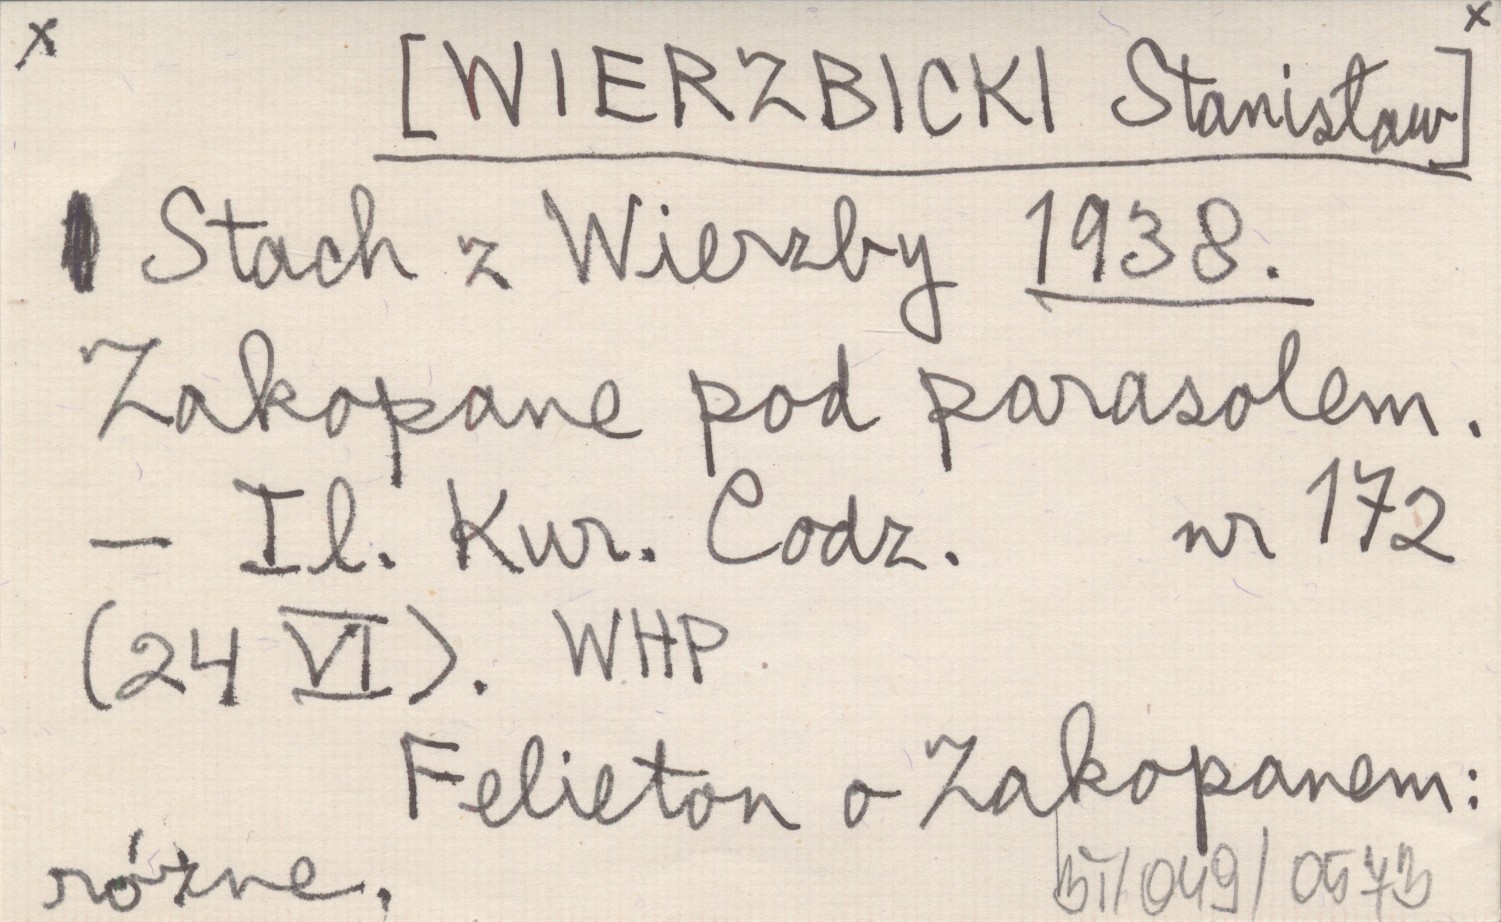 x x
[WIERZBICKI Stanisław]
Stach z Wierzby 1938.
Zakopane pod parasolem.
— Il. Kur. Codz. nr 172
(24 VI). WHP.
Felieton o Zakopanem:
różne.
BT/049/0573